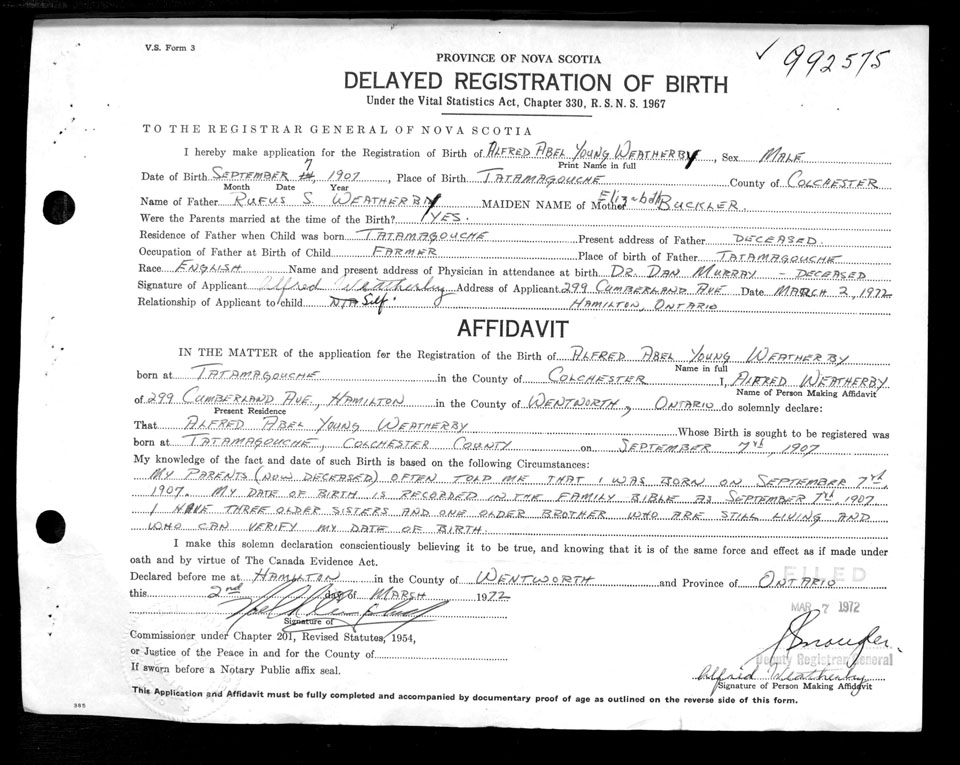 V.S. Form 3
✓ 992575
PROVINCE OF NOVA SCOTIA
DELAYED REGISTRATION OF BIRTH
Under the Vital Statistics Act, Chapter 330, R.S.N.S. 1967
TO THE REGISTRAR GENERAL OF NOVA SCOTIA
I hereby make application for the Registration of Birth of ALFRED ABEL YOUNG WEATHERBY, Sex MALE
Print Name in full
Date of Birth SEPTEMBER 7, 1907, Place of Birth TATAMAGOUCHE County of COLCHESTER
Month Date Year
Name of Father RUFUS S. WEATHERBY MAIDEN NAME of Mother Elizabeth BUCKLER.
Were the Parents married at the time of the Birth? YES.
Residence of Father when Child was born TATAMAGOUCHE Present address of Father DECEASED.
Occupation of Father at Birth of Child FARMER Place of birth of Father TATAMAGOUCHE
Race ENGLISH Name and present address of Physician in attendance at birth DR. DAN MURRAY - DECEASED
Signature of Applicant Alfred Weatherby Address of Applicant 299 CUMBERLAND AVE Date MARCH 2, 1972
Relationship of Applicant to child N/A Self. HAMILTON, ONTARIO
AFFIDAVIT
IN THE MATTER of the application for the Registration of the Birth of ALFRED ABEL YOUNG WEATHERBY
Name in full
born at TATAMAGOUCHE in the County of COLCHESTER I, ALFRED WEATHERBY
Name of Person Making Affidavit
of 299 CUMBERLAND AVE., HAMILTON in the County of WENTWORTH, ONTARIO do solemnly declare:
Present Residence
That ALFRED ABEL YOUNG WEATHERBY Whose Birth is sought to be registered was
born at TATAMAGOUCHE, COLCHESTER COUNTY on SEPTEMBER 7th, 1907
My knowledge of the fact and date of such Birth is based on the following Circumstances:
MY PARENTS (NOW DECEASED) OFTEN TOLD ME THAT I WAS BORN ON SEPTEMBER 7th,
1907. MY DATE OF BIRTH IS RECORDED IN THE FAMILY BIBLE AS SEPTEMBER 7th, 1907
I HAVE THREE OLDER SISTERS AND ONE OLDER BROTHER WHO ARE STILL LIVING AND
WHO CAN VERIFY MY DATE OF BIRTH.
I make this solemn declaration conscientiously believing it to be true, and knowing that it is of the same force and effect as if made under
oath and by virtue of The Canada Evidence Act.
Declared before me at HAMILTON in the County of WENTWORTH and Province of ONTARIO
FILED
this 2nd day of MARCH 1972
MAR 7 1972
Signature of
Commissioner under Chapter 201, Revised Statutes, 1954,
or Justice of the Peace in and for the County of
Deputy Registrar General
If sworn before a Notary Public affix seal.
Alfred Weatherby
Signature of Person Making Affidavit
This Application and Affidavit must be fully completed and accompanied by documentary proof of age as outlined on the reverse side of this form.